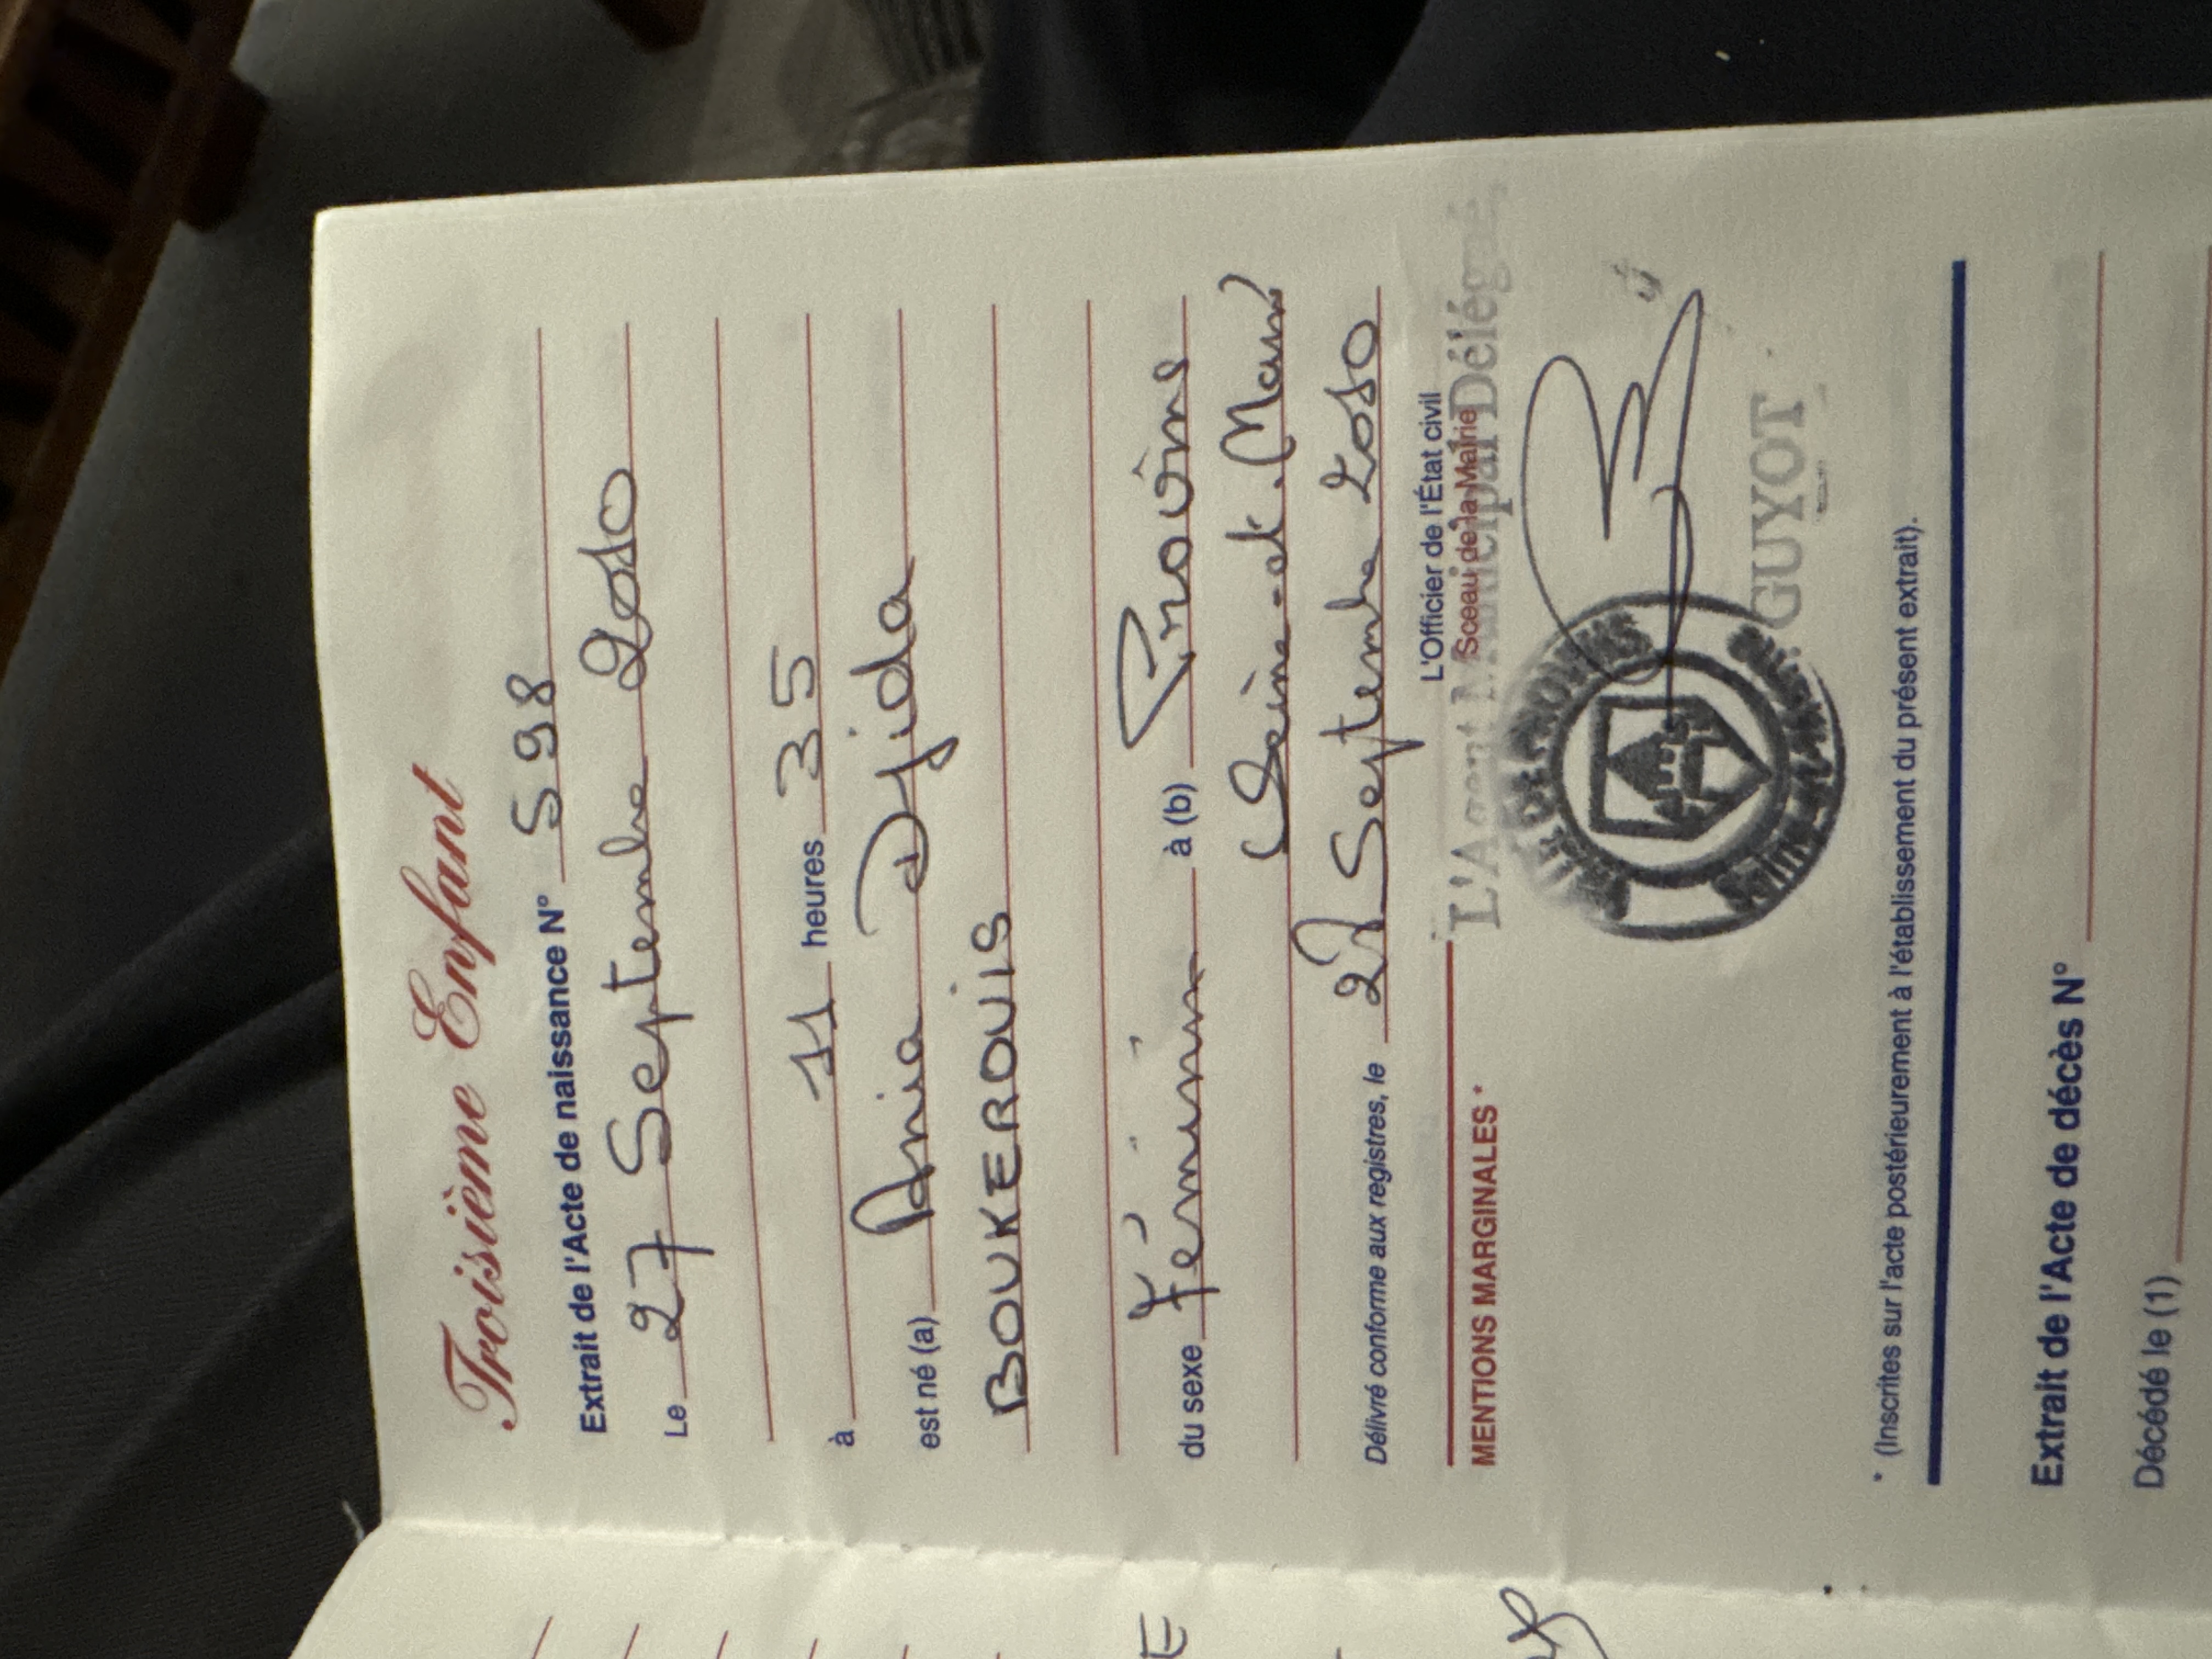 Troisième Enfant
Extrait de l'Acte de naissance N° 598
Le 27 Septembre 2010
à 11 heures 35
est né (a) Ania Djida
BOUKEROUIS
du sexe Féminin à (b) Provins
(Seine-et-Marne)
Délivré conforme aux registres, le 27 Septembre 2010
L'Officier de l'État civil
Sceau de la Mairie
L'Agent Municipal Délégué,
MENTIONS MARGINALES *
GUYOT
* (Inscrites sur l'acte postérieurement à l'établissement du présent extrait).
Extrait de l'Acte de décès N°
Décédé le (1)